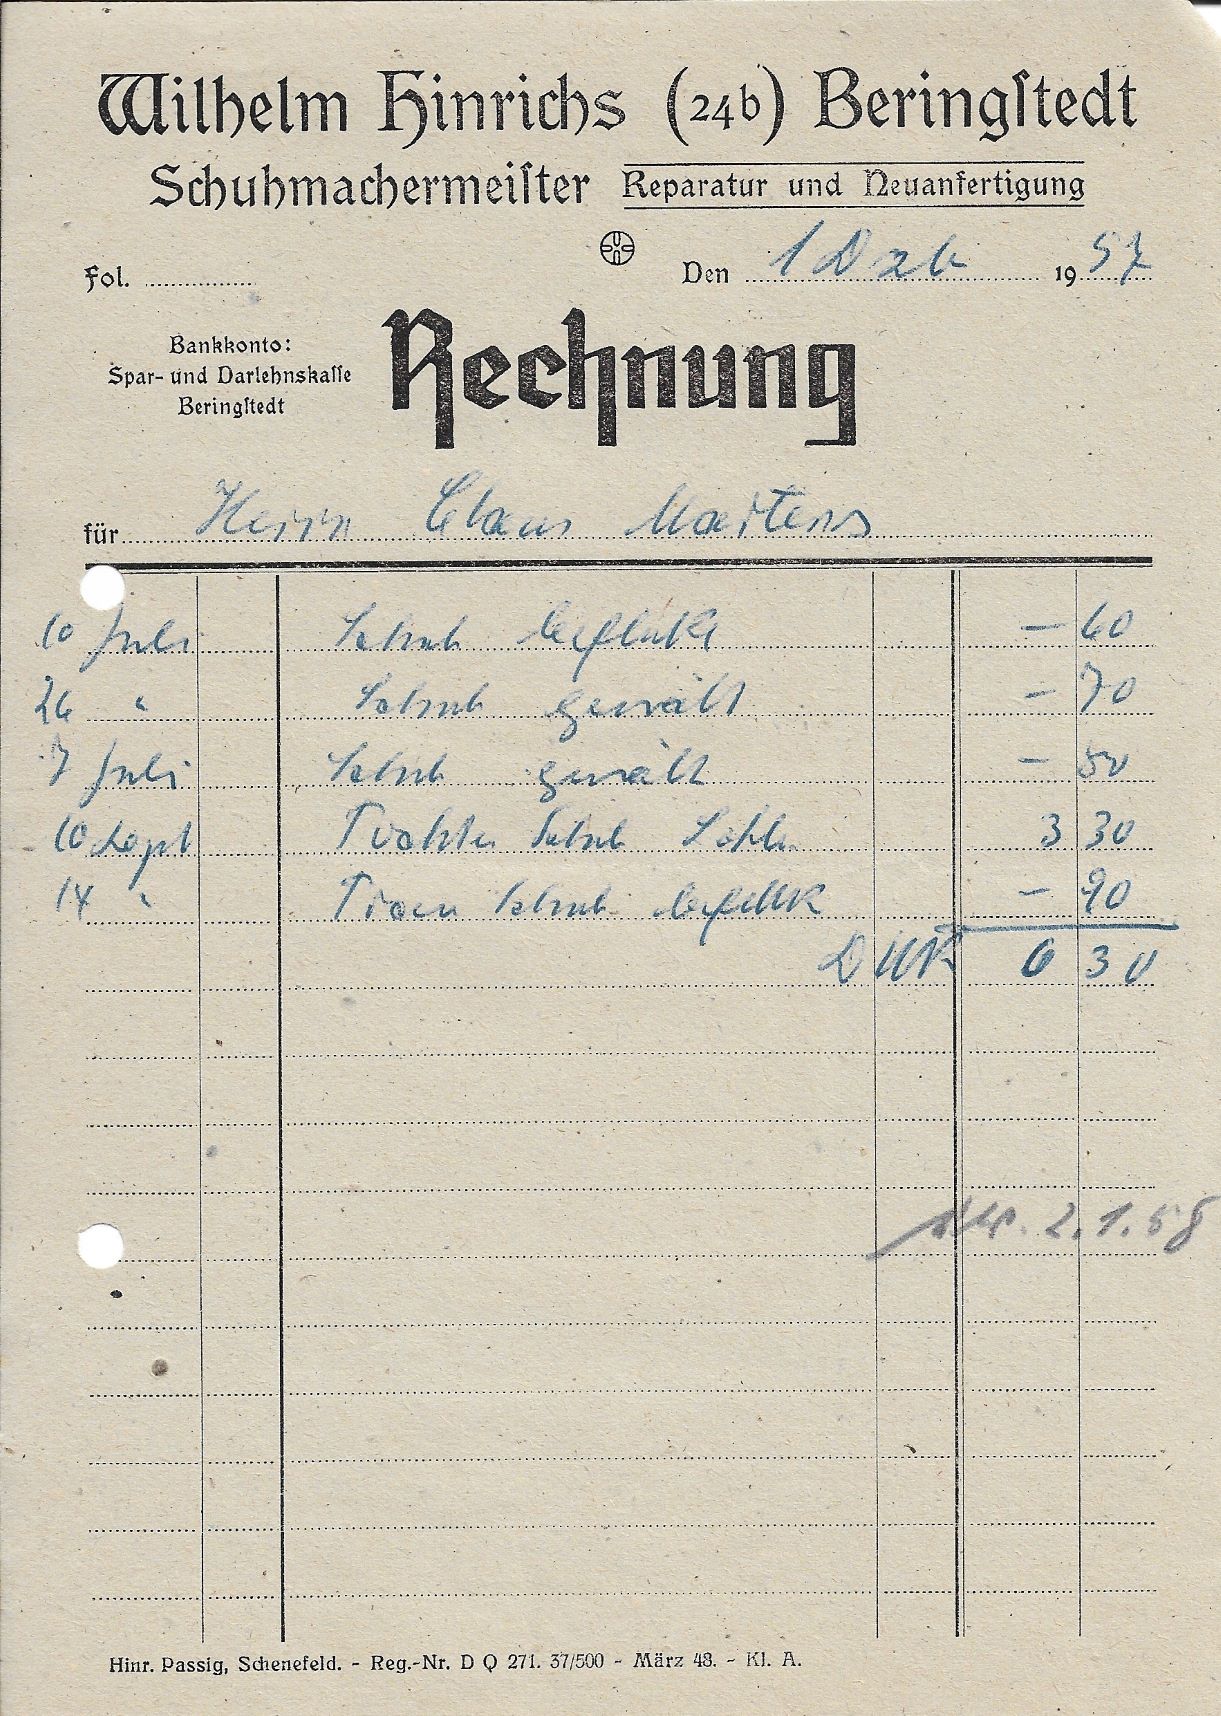 Wilhelm Hinrichs (24b) Beringſtedt
Schuhmachermeiſter Reparatur und Neuanfertigung
Fol. Den 1 Dzb 1957
Bankkonto:
Spar- und Darlehnskaſſe
Beringſtedt
Rechnung
für Herrn Claus Martens
10 Juli Schuh - 60
26 " Schuh - 70
7 Juli Schuh - 80
10 Sept Tochter Schuh Sohlen 3 30
14 " Schuh - 90
DMK 6 30
2.1.58
Hinr. Passig, Schenefeld. - Reg.-Nr. D Q 271. 37/500 - März 48. - Kl. A.